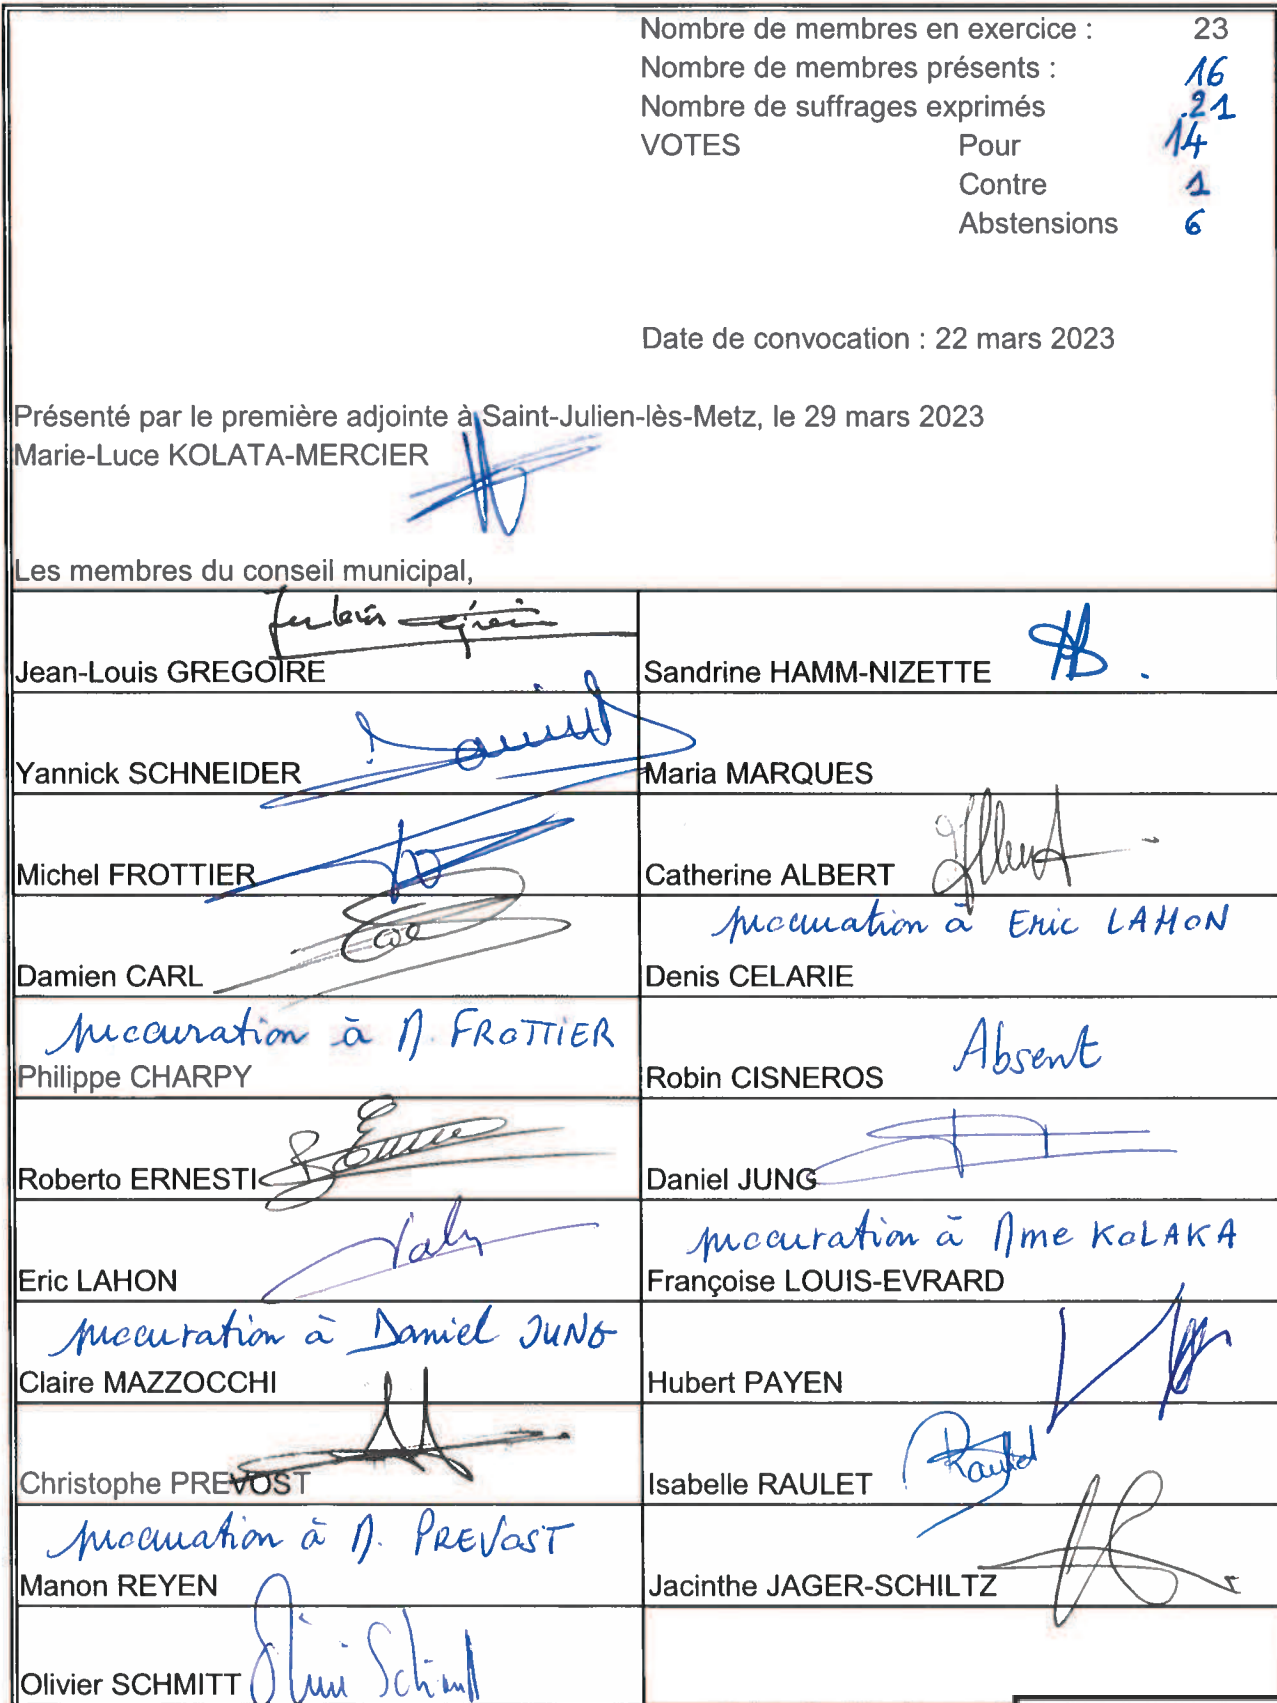 Nombre de membres en exercice : 23
Nombre de membres présents : 16
Nombre de suffrages exprimés 21
VOTES Pour 14
Contre 1
Abstensions 6
Date de convocation : 22 mars 2023
Présenté par le première adjointe à Saint-Julien-lès-Metz, le 29 mars 2023
Marie-Luce KOLATA-MERCIER
Les membres du conseil municipal,
Jean-Louis GREGOIRE
Sandrine HAMM-NIZETTE
Yannick SCHNEIDER
Maria MARQUES
Michel FROTTIER
Catherine ALBERT
Damien CARL
procuration à Eric LAHON
Denis CELARIE
procuration à M. FROTTIER
Philippe CHARPY
Absent
Robin CISNEROS
Roberto ERNESTI
Daniel JUNG
Eric LAHON
procuration à Mme KOLAKA
Françoise LOUIS-EVRARD
procuration à Daniel JUNG
Claire MAZZOCCHI
Hubert PAYEN
Christophe PREVOST
Isabelle RAULET
Raulet
procuration à M. PREVOST
Manon REYEN
Jacinthe JAGER-SCHILTZ
Olivier SCHMITT